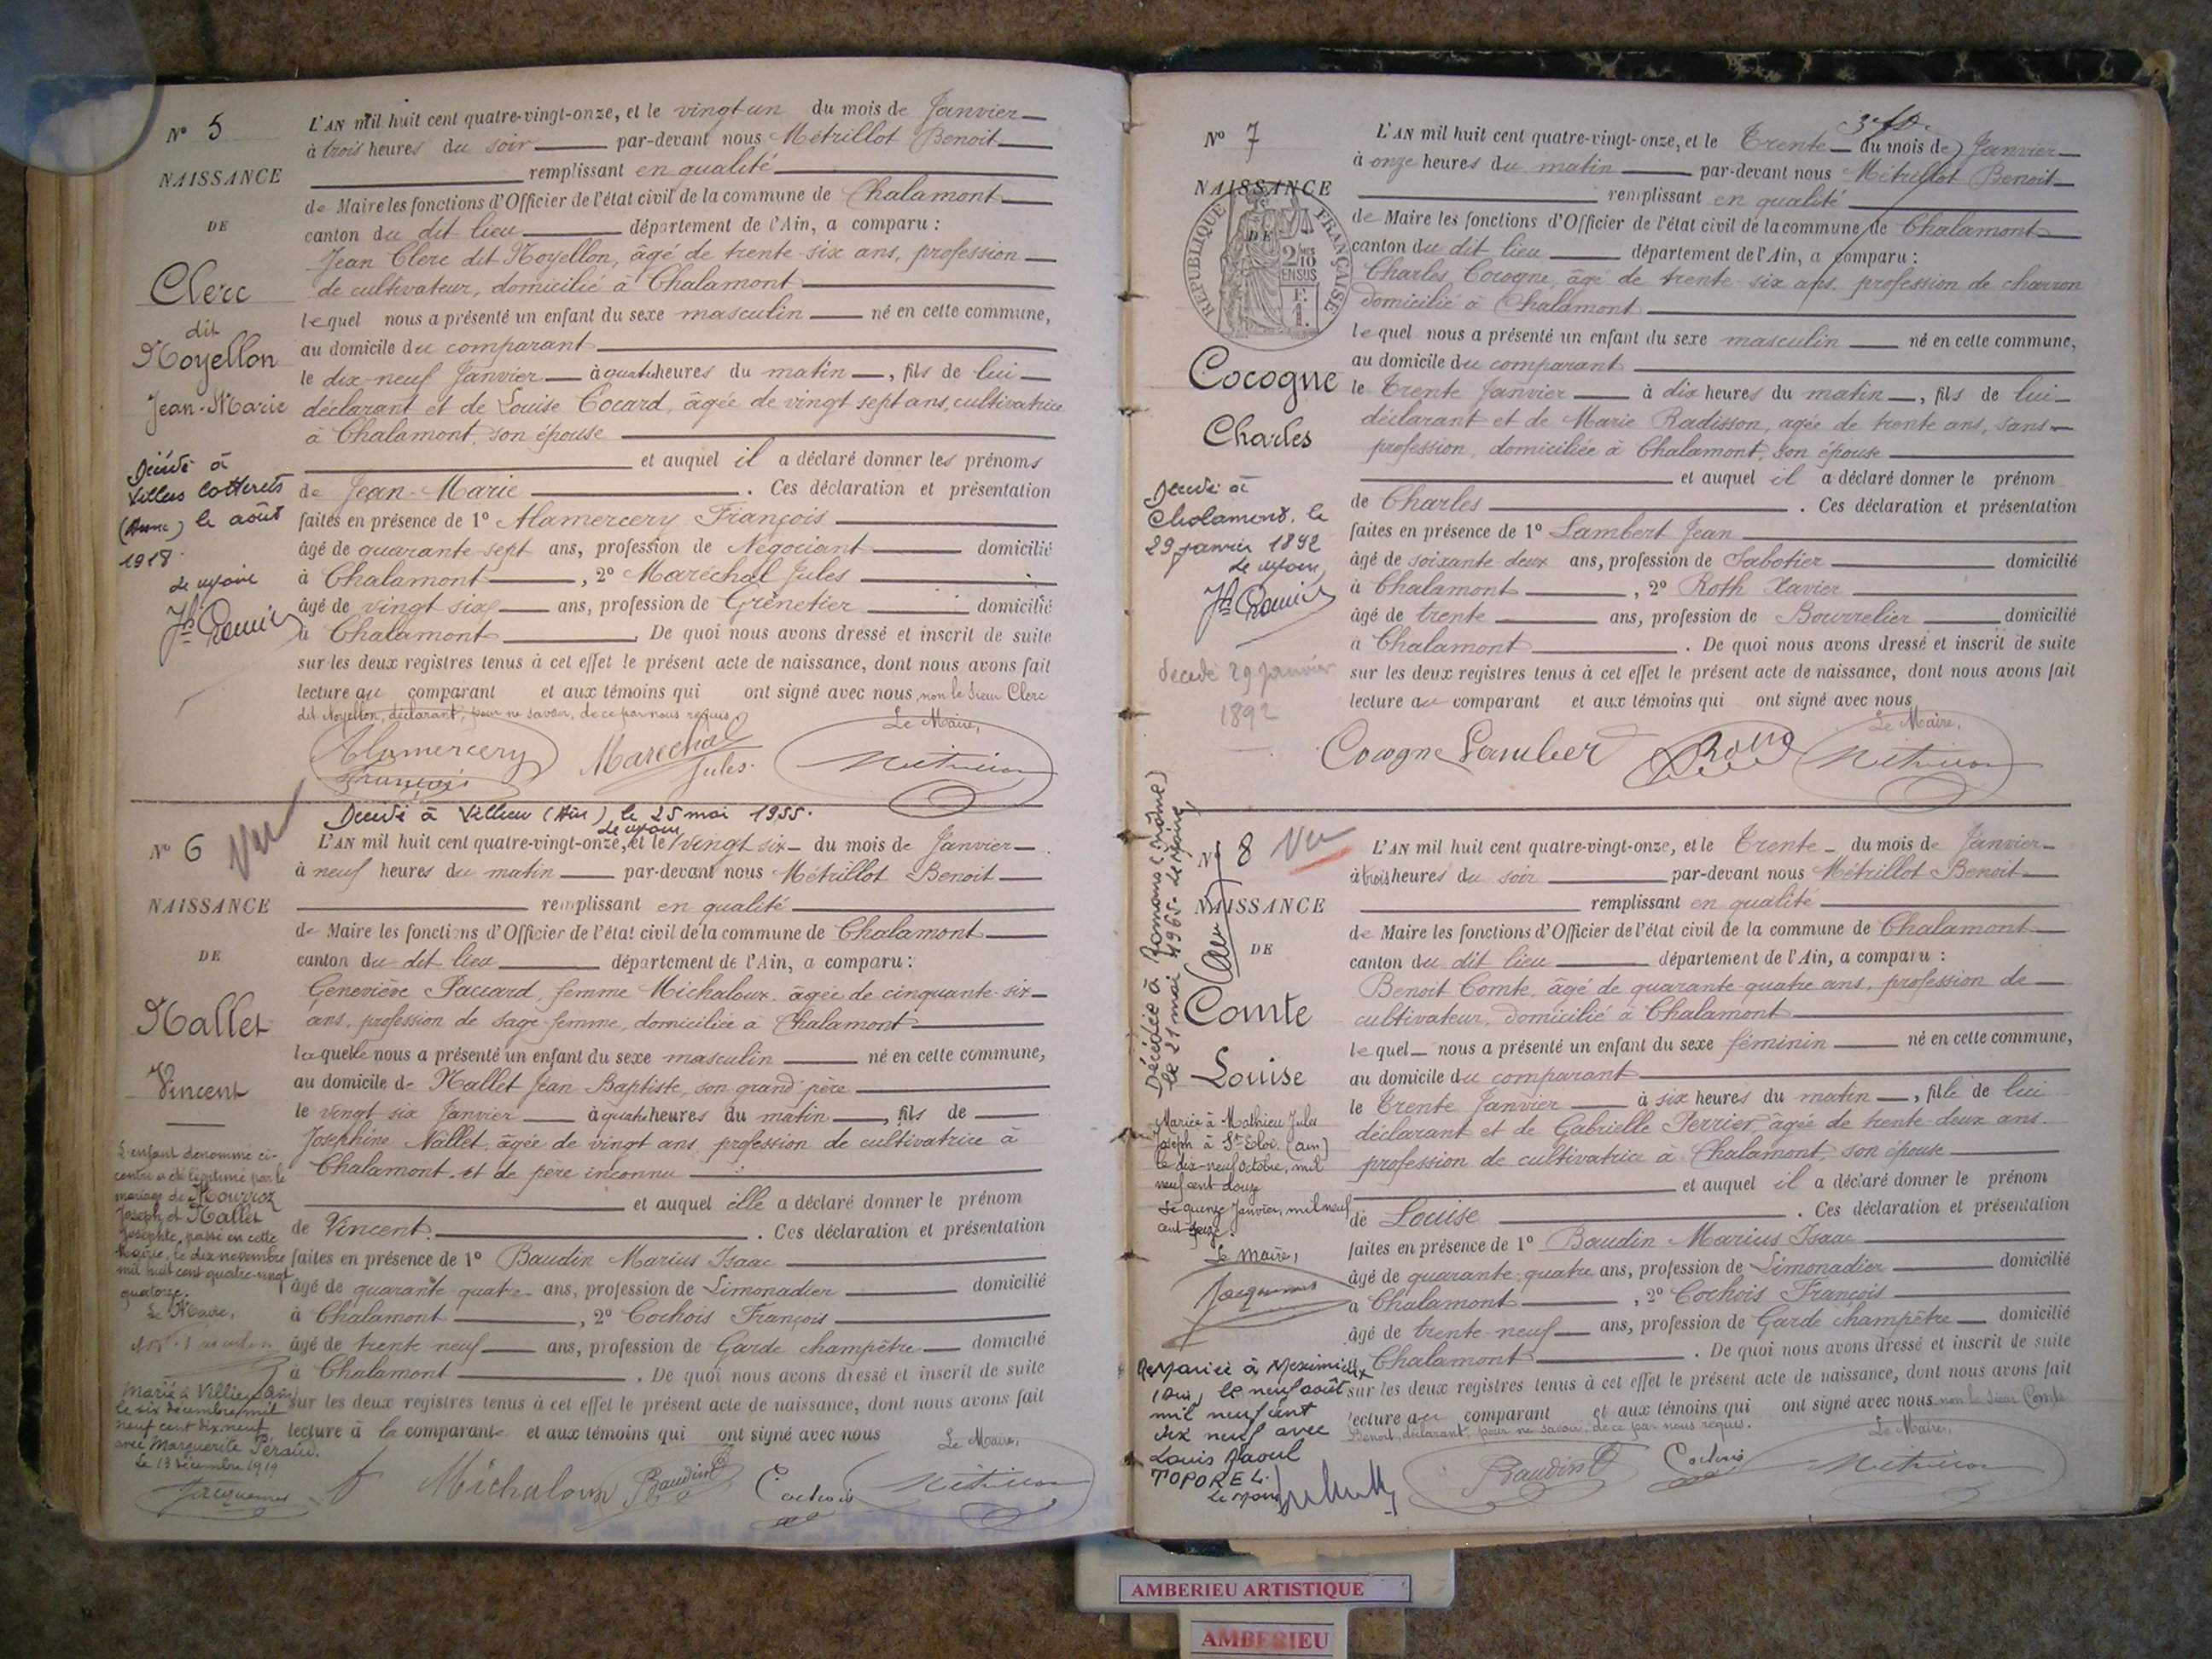 N° 5
NAISSANCE
DE
Clerc
dit
Noyellon
Jean-Marie
Décédé à
Villers Cotterets
(Aisne) le août
1918
Le Maire
L'AN mil huit cent quatre-vingt-onze, et le vingt un du mois de Janvier
à trois heures du soir par-devant nous Métrillot Benoit
remplissant en qualité
de Maire les fonctions d'Officier de l'état civil de la commune de Chalamont
canton du dit lieu département de l'Ain, a comparu :
Jean Clerc dit Noyellon, âgé de trente-six ans, profession
de cultivateur, domicilié à Chalamont
lequel nous a présenté un enfant du sexe masculin né en cette commune,
au domicile du comparant
le dix-neuf Janvier à quatre heures du matin, fils de lui
déclarant et de Louise Cocard, âgée de vingt sept ans, cultivatrice
à Chalamont, son épouse
et auquel il a déclaré donner les prénoms
de Jean-Marie. Ces déclaration et présentation
faites en présence de 1° Alamercery François
âgé de quarante-sept ans, profession de Négociant domicilié
à Chalamont, 2° Maréchal Jules
âgé de vingt six ans, profession de Grènetier domicilié
à Chalamont. De quoi nous avons dressé et inscrit de suite
sur les deux registres tenus à cet effet le présent acte de naissance, dont nous avons fait
lecture au comparant et aux témoins qui ont signé avec nous, non le sieur Clerc
dit Noyellon, déclarant, pour ne savoir, de ce par nous requis.
Le Maire,
Alamercery
François
Marechal
Jules
N° 6
Vu
NAISSANCE
DE
Nallet
Vincent
L'enfant dénommé ci-
contre a été légitimé par le
mariage de Mourroz
Joseph et Nallet
Josephte, passé en cette
Mairie, le dix novembre
mil huit cent quatre-vingt
quatorze.
Le Maire,
Marié à Villieu (Ain)
le six décembre mil
neuf cent dix neuf
avec Marguerite Peraud.
Le 13 décembre 1919
Jacquemet
Décédé à Villieu (Ain) le 25 mai 1955.
Le Maire
L'AN mil huit cent quatre-vingt-onze, et le vingt six du mois de Janvier
à neuf heures du matin par-devant nous Métrillot Benoit
remplissant en qualité
de Maire les fonctions d'Officier de l'état civil de la commune de Chalamont
canton du dit lieu département de l'Ain, a comparu :
Geneviève Paccard, femme Michaloux, âgée de cinquante-six
ans, profession de sage-femme, domiciliée à Chalamont
laquelle nous a présenté un enfant du sexe masculin né en cette commune,
au domicile de Nallet Jean Baptiste, son grand père
le vingt six Janvier à quatre heures du matin, fils de
Joséphine Nallet, âgée de vingt ans, profession de cultivatrice à
Chalamont, et de père inconnu
et auquel elle a déclaré donner le prénom
de Vincent. Ces déclaration et présentation
faites en présence de 1° Baudin Marius Isaac
âgé de quarante quatre ans, profession de Limonadier domicilié
à Chalamont, 2° Cochois François
âgé de trente neuf ans, profession de Garde champêtre domicilié
à Chalamont. De quoi nous avons dressé et inscrit de suite
sur les deux registres tenus à cet effet le présent acte de naissance, dont nous avons fait
lecture à la comparante et aux témoins qui ont signé avec nous
Le Maire,
Michaloux
Baudin
Cochois
N° 7
NAISSANCE
DE
RÉPUBLIQUE FRANÇAISE
2/10
EN SUS
F.
1.
Cocogne
Charles
Décédé à
Chalamont, le
29 janvier 1892
Le Maire,
décédé 29 janvier
1892
L'AN mil huit cent quatre-vingt-onze, et le Trente du mois de Janvier
à onze heures du matin par-devant nous Métrillot Benoit
remplissant en qualité
de Maire les fonctions d'Officier de l'état civil de la commune de Chalamont
canton du dit lieu département de l'Ain, a comparu :
Charles Cocogne, âgé de trente-six ans, profession de charron
domicilié à Chalamont
lequel nous a présenté un enfant du sexe masculin né en cette commune,
au domicile du comparant
le Trente Janvier à dix heures du matin, fils de lui
déclarant et de Marie Radisson, âgée de trente ans, sans
profession, domiciliée à Chalamont, son épouse
et auquel il a déclaré donner le prénom
de Charles. Ces déclaration et présentation
faites en présence de 1° Lambert Jean
âgé de soixante-deux ans, profession de Sabotier domicilié
à Chalamont, 2° Roth Xavier
âgé de trente ans, profession de Bourrelier domicilié
à Chalamont. De quoi nous avons dressé et inscrit de suite
sur les deux registres tenus à cet effet le présent acte de naissance, dont nous avons fait
lecture au comparant et aux témoins qui ont signé avec nous
Le Maire,
Cocogne Lambert Roth
N° 8 Vu
NAISSANCE
DE
Comte
Louise
Décédée à Romans (Drôme)
le 21 mai 1965. Le Maire,
Mariée à Mathieu Jules
Joseph à St Eloi (Ain)
le dix-neuf octobre, mil
neuf cent douze
Le quinze Janvier, mil neuf
cent seize.
Le Maire,
Jacquemet
Remariée à Meximieux
(Ain) le neuf août
mil neuf cent
dix neuf avec
Louis Raoul
TOPOREL.
Le Maire
L'AN mil huit cent quatre-vingt-onze, et le Trente du mois de Janvier
à trois heures du soir par-devant nous Métrillot Benoit
remplissant en qualité
de Maire les fonctions d'Officier de l'état civil de la commune de Chalamont
canton du dit lieu département de l'Ain, a comparu :
Benoit Comte, âgé de quarante-quatre ans, profession de
cultivateur, domicilié à Chalamont
lequel nous a présenté un enfant du sexe féminin né en cette commune,
au domicile du comparant
le Trente Janvier à six heures du matin, fille de lui
déclarant et de Gabrielle Perrier, âgée de trente-deux ans
profession de cultivatrice à Chalamont, son épouse
et auquel il a déclaré donner le prénom
de Louise. Ces déclaration et présentation
faites en présence de 1° Baudin Marius Isaac
âgé de quarante-quatre ans, profession de Limonadier domicilié
à Chalamont, 2° Cochois François
âgé de trente-neuf ans, profession de Garde champêtre domicilié
à Chalamont. De quoi nous avons dressé et inscrit de suite
sur les deux registres tenus à cet effet le présent acte de naissance, dont nous avons fait
lecture au comparant et aux témoins qui ont signé avec nous non le sieur Comte
Benoit, déclarant, pour ne savoir, de ce par nous requis.
Le Maire,
Baudin
Cochois
AMBERIEU ARTISTIQUE
AMBERIEU